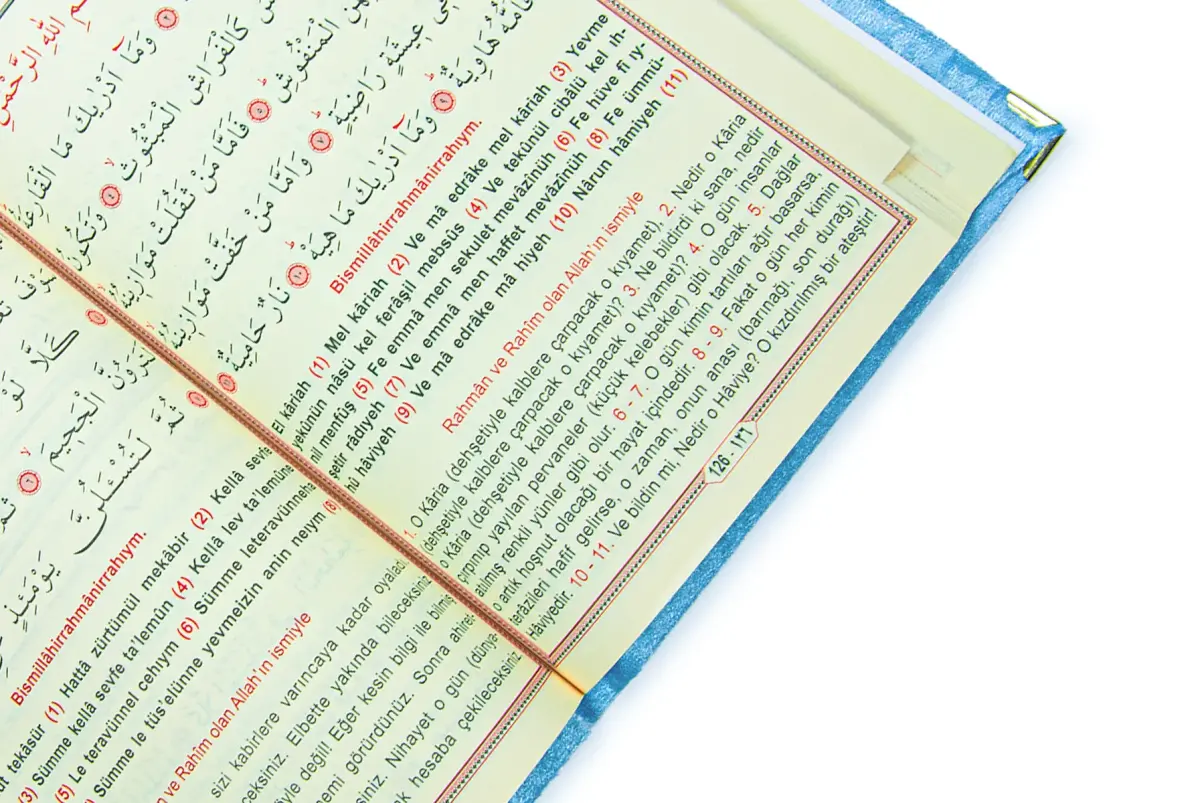 اللهِ الرَّحْمٰنِ
وَمَا اَدْرٰيكَ مَا
كَالْفَرَاشِ الْمَبْثُوثِ ٤ وَتَكُونُ
الْمَنْفُوشِ ٥ فَاَمَّا مَنْ ثَقُلَتْ
عِيشَةٍ رَاضِيَةٍ ٧ وَاَمَّا مَنْ خَفَّتْ
فَاُمُّهُ هَاوِيَةٌ ٩ وَمَا اَدْرٰيكَ مَا هِيَهْ ١٠ نَارٌ حَامِيَةٌ ١١
Bismillâhirrahmânirrahıym.
El kâriah (1) Mel kâriah (2) Ve mâ edrâke mel kâriah (3) Yevme
yekûnün nâsü kel ferâşil mebsûs (4) Ve tekûnül cibâlü kel ıh-
nil menfûş (5) Fe emmâ men sekulet mevâzînüh (6) Fe hüve fî ıy-
şetir râdıyeh (7) Ve emmâ men haffet mevâzînüh (8) Fe ümmü-
hû hâviyeh (9) Ve mâ edrâke mâ hiyeh (10) Nârun hâmiyeh (11)
Rahmân ve Rahîm olan Allah'ın ismiyle
1. O Kâria (dehşetiyle kalblere çarpacak o kıyamet), 2. Nedir o Kâria
(dehşetiyle kalblere çarpacak o kıyamet)? 3. Ne bildirdi ki sana, nedir
o Kâria (dehşetiyle kalblere çarpacak o kıyamet)? 4. O gün insanlar
çırpınıp yayılan pervaneler (küçük kelebekler) gibi olacak. 5. Dağlar
atılmış renkli yünler gibi olur. 6 - 7. O gün kimin tartıları ağır basarsa,
o artık hoşnut olacağı bir hayat içindedir. 8 - 9. Fakat o gün her kimin
terâzîleri hafif gelirse, o zaman, onun anası (barınağı, son durağı)
Hâviyedir. 10 - 11. Ve bildin mi, Nedir o Hâviye? O kızdırılmış bir ateştir!
126 - ١٢٦
كَلَّا لَوْ
الْجَحِيمَ ٦
ثُمَّ لَتُسْئَلُنَّ يَوْمَئِذٍ
Bismillâhirrahmânirrahıym.
tekâsür (1) Hattâ zürtümül mekâbir (2) Kellâ sevfe
(3) Sümme kellâ sevfe ta'lemûn (4) Kellâ lev ta'lemûne
(5) Le teravünnel cehıym (6) Sümme leteravünnehâ
Sümme le tüs'elünne yevmeizin anin neıym (8)
ve Rahîm olan Allah'ın ismiyle
sizi kabirlere varıncaya kadar oyaladı
Elbette yakında bileceksiniz
değil! Eğer kesin bilgi ile bilmiş
görürdünüz. Sonra
Nihayet o gün (dünya
hesaba çekileceksiniz